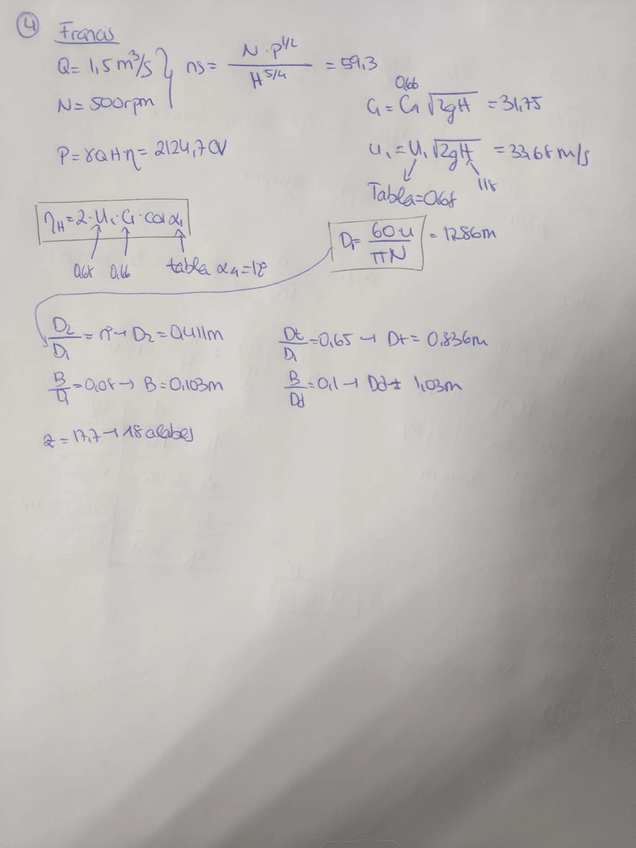 ④ Francis
Q = 1,5 m³/s
N = 500 rpm
ns = N · P^1/2 / H^5/4 = 59,3
P = γQH·η = 2124,7 CV
0,66
C₁ = C₁ √2gH = 31,75
u₁ = U₁ √2gH = 33,68 m/s
Tabla = 0,68 118
ηH = 2·U₁·C₁·cos α₁
0,68 0,66 tabla α₁ = 12º
D₁ = 60·u / πN = 1286m
D₂/D₁ = → D₂ = 0,411m
Dt/D₁ = 0,65 → Dt = 0,836m
B/D₁ = 0,08 → B = 0,103m
B/Dd = 0,1 → Dd = 1,03m
z = 17,7 → 18 alabes